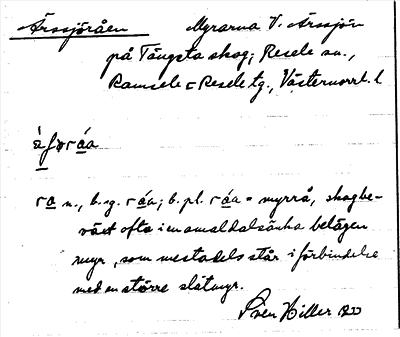 Ärssjöråen Myrarna V. Ärssjön
på Tängsta skog, Resele sn.,
Ramsele o Resele tg., Västernorrl. l
råa
ra n., b. sg. ráa; b. pl. ráa = myrrå, skogbe-
växt ofta i en smal dalsänka belägen
myr, som mestadels står i förbindelse
med en större slåtmyr.
Sven Hiller 1933